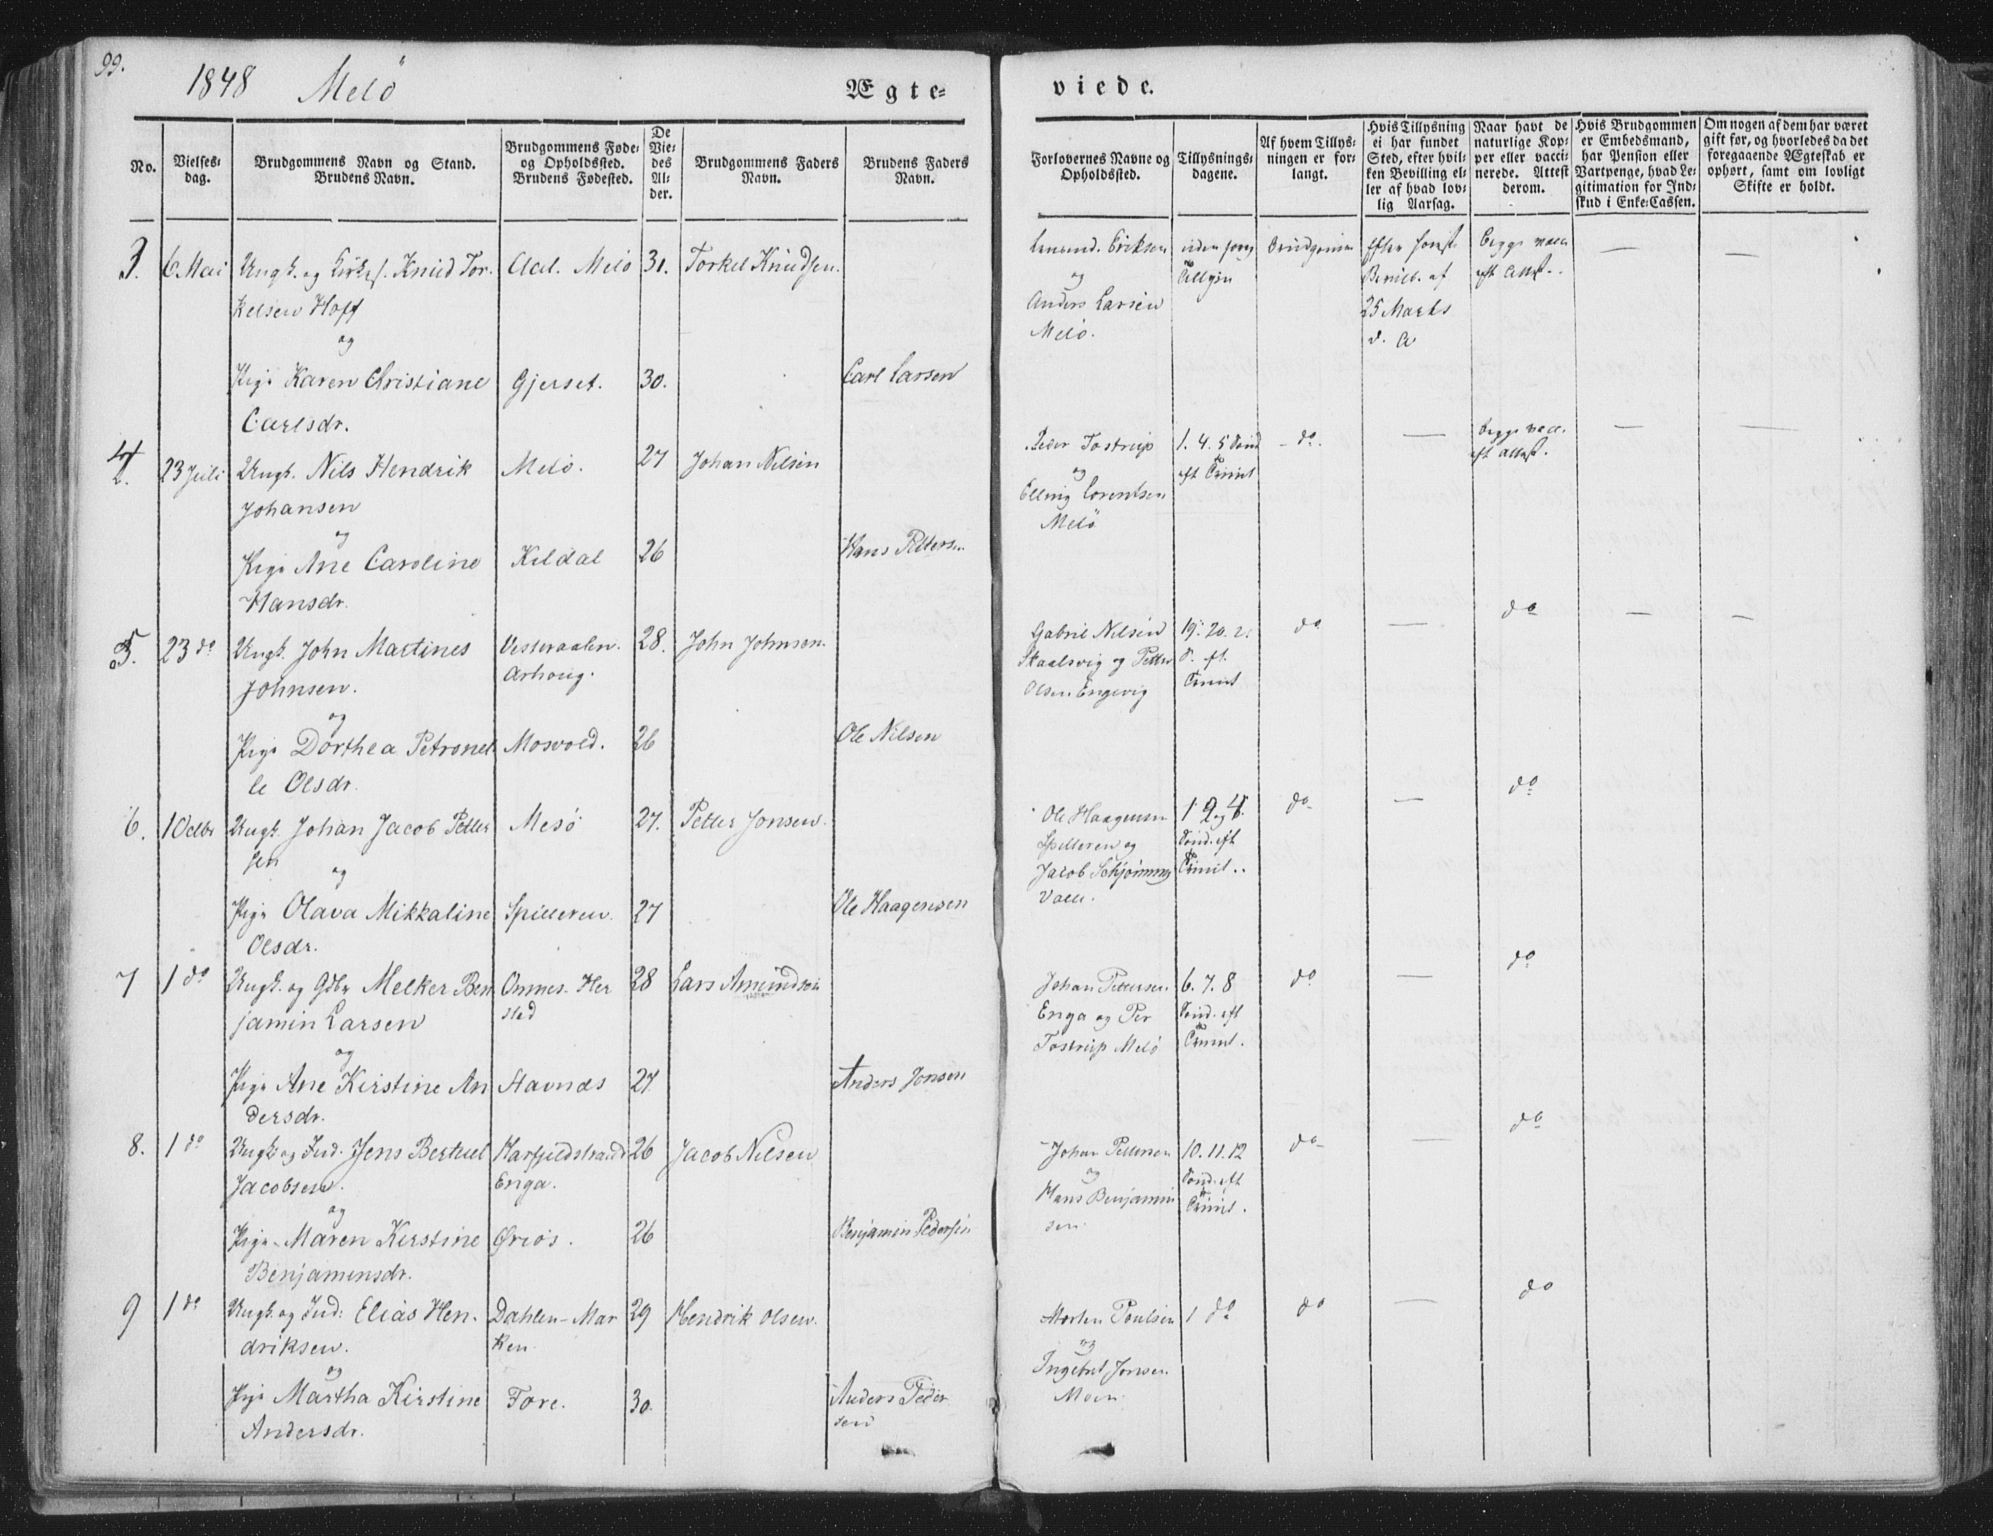 99.
1848 Melö
Ægte=
viede.
No.
Vielses-
dag.
Brudgommens Navn og Stand.
Brudens Navn.
Brudgommens Føde-
og Opholdssted.
Brudens Fødested.
De
Vie-
des
Al-
der.
Brudgommens Faders
Navn.
Brudens Faders
Navn.
Forlovernes Navne og
Opholdssted.
Tillysnings-
dagene.
Af hvem Tillys-
ningen er for-
langt.
Hvis Tillysning
ei har fundet
Sted, efter hvil-
ken Bevilling el-
ler af hvad lov-
lig Aarsag.
Naar havt de
naturlige Kop-
per eller vacci-
nerede. Attest
derom.
Hvis Brudgommen
er Embedsmand,
har Pension eller
Vartpenge, hvad Le-
gitimation for Ind-
skud i Enke-Cassen.
Om nogen af dem har været
gift før, og hvorledes da det
foregaaende Ægteskab er
ophørt, samt om lovligt
Skifte er holdt.
3. 6 Mai Ungk. og Knud Tor- Aal. Melö 31. Torkel Knudsen.
kelsen Hoff
og
Pige Karen Christiane Gjerset. 30. Carl Larsen
Carlsdr.
Eriksen
og
Anders Larsen
Melö.
Brudgommen
Efter
Bevill. af
25 Marts
d. A
begge vacc
eft Attest.
4. 23 Juli Ungk. Nils Hendrik Melö. 27 Johan Nilsen
Johansen
og
Pige Ane Caroline Kildal 26 Hans Pettersen
Hansdr.
Peder Tostrup
og
Elling Lorentsen
Melö
1. 4. 5 Sönd
eft Trinit
do.
begge vacc.
eft attest.
5. 23 do Ungk. John Martines Vesteraalen. 28. John Johnsen.
Johnsen. Arhoug.
og
Pige Dorthea Petronel Mosvold. 26 Ole Nilsen
le Olsdr.
Gabriel Nilsen
Skaalsvig og Petter
Olsen Engevig
19. 20. 21
S. eft.
Trinit
do
do
6. 1 Octbr Ungk. Johan Jacob Petter Mesö 27. Petter Jonsen.
sen
og
Pige Olava Mikkaline Spilleren. 27 Ole Haagensen
Olsdr.
Ole Haagensen
Spilleren og
Jacob Schjönning
Valle.
1 2 og 4.
Sönd. eft
Trinit..
do
do
7 1 do Ungk. og Gdbr Melker Ben Onnes. Her 28 Lars Amundsen
jamin Larsen sted
og
Pige Ane Kirstine An Stavnæs 27 Anders Jonsen
dersdr.
Johan Pettersen
Enga og Per
Tostrup Melö
6. 7. 8
Sönd. eft
Trinit.
do
do
8. 1 do Ungk. og Ind. Jens Bertuel Harfjeldstrand 26 Jacob Nilsen
Jacobsen. Enga.
og
Pige Maren Kirstine Øriøs. 26 Benjamin Pedersen
Benjaminsdr.
Johan Pettersen
og
Hans Benjamin
sen.
10. 11. 12
Sönd. eft
Trinit.
do
do
9 1 do Ungk. og Ind: Elias Hen- Dahlen-Mar 29 Hendrik Olsen.
driksen. ken
og
Pige Martha Kirstine Fore. 30. Anders Peder
Andersdr. sen
Morten Poulsen
og
Ingebret Jonsen
Moen.
1 do
do
do